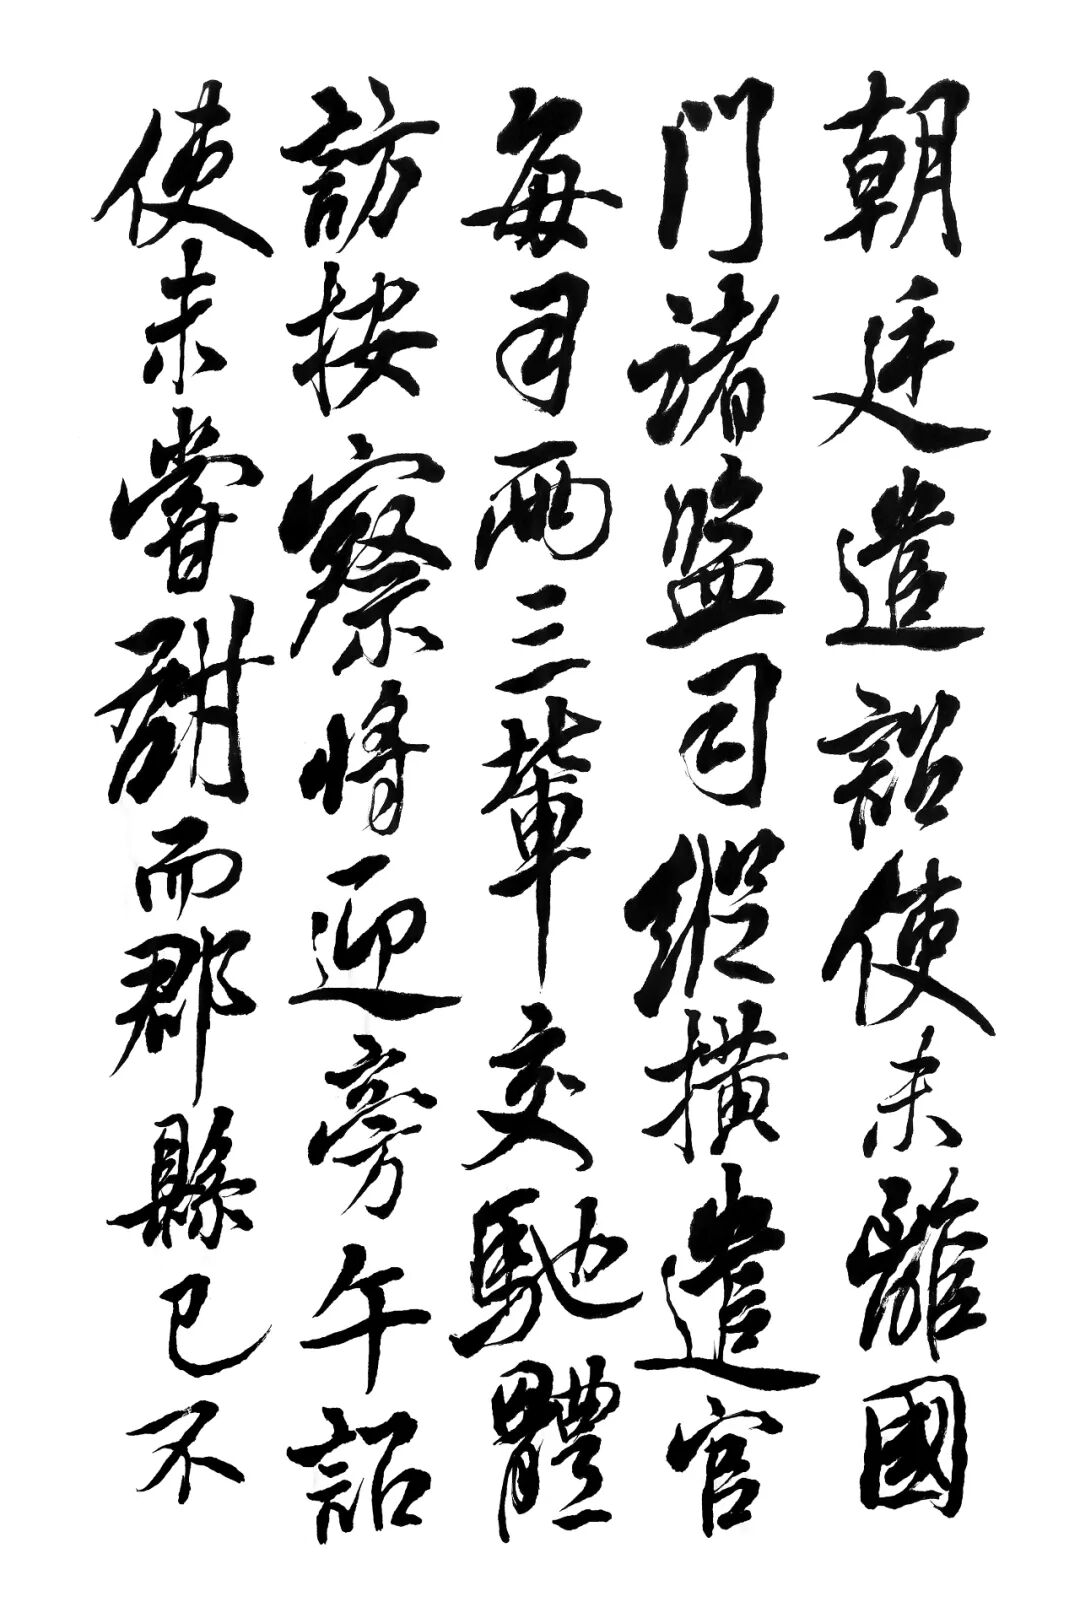 朝廷遣詔使未離國
門諸監司縱橫遣官
每司兩三輩交馳體
訪按察將迎旁午詔
使未嘗甜而郡縣已不